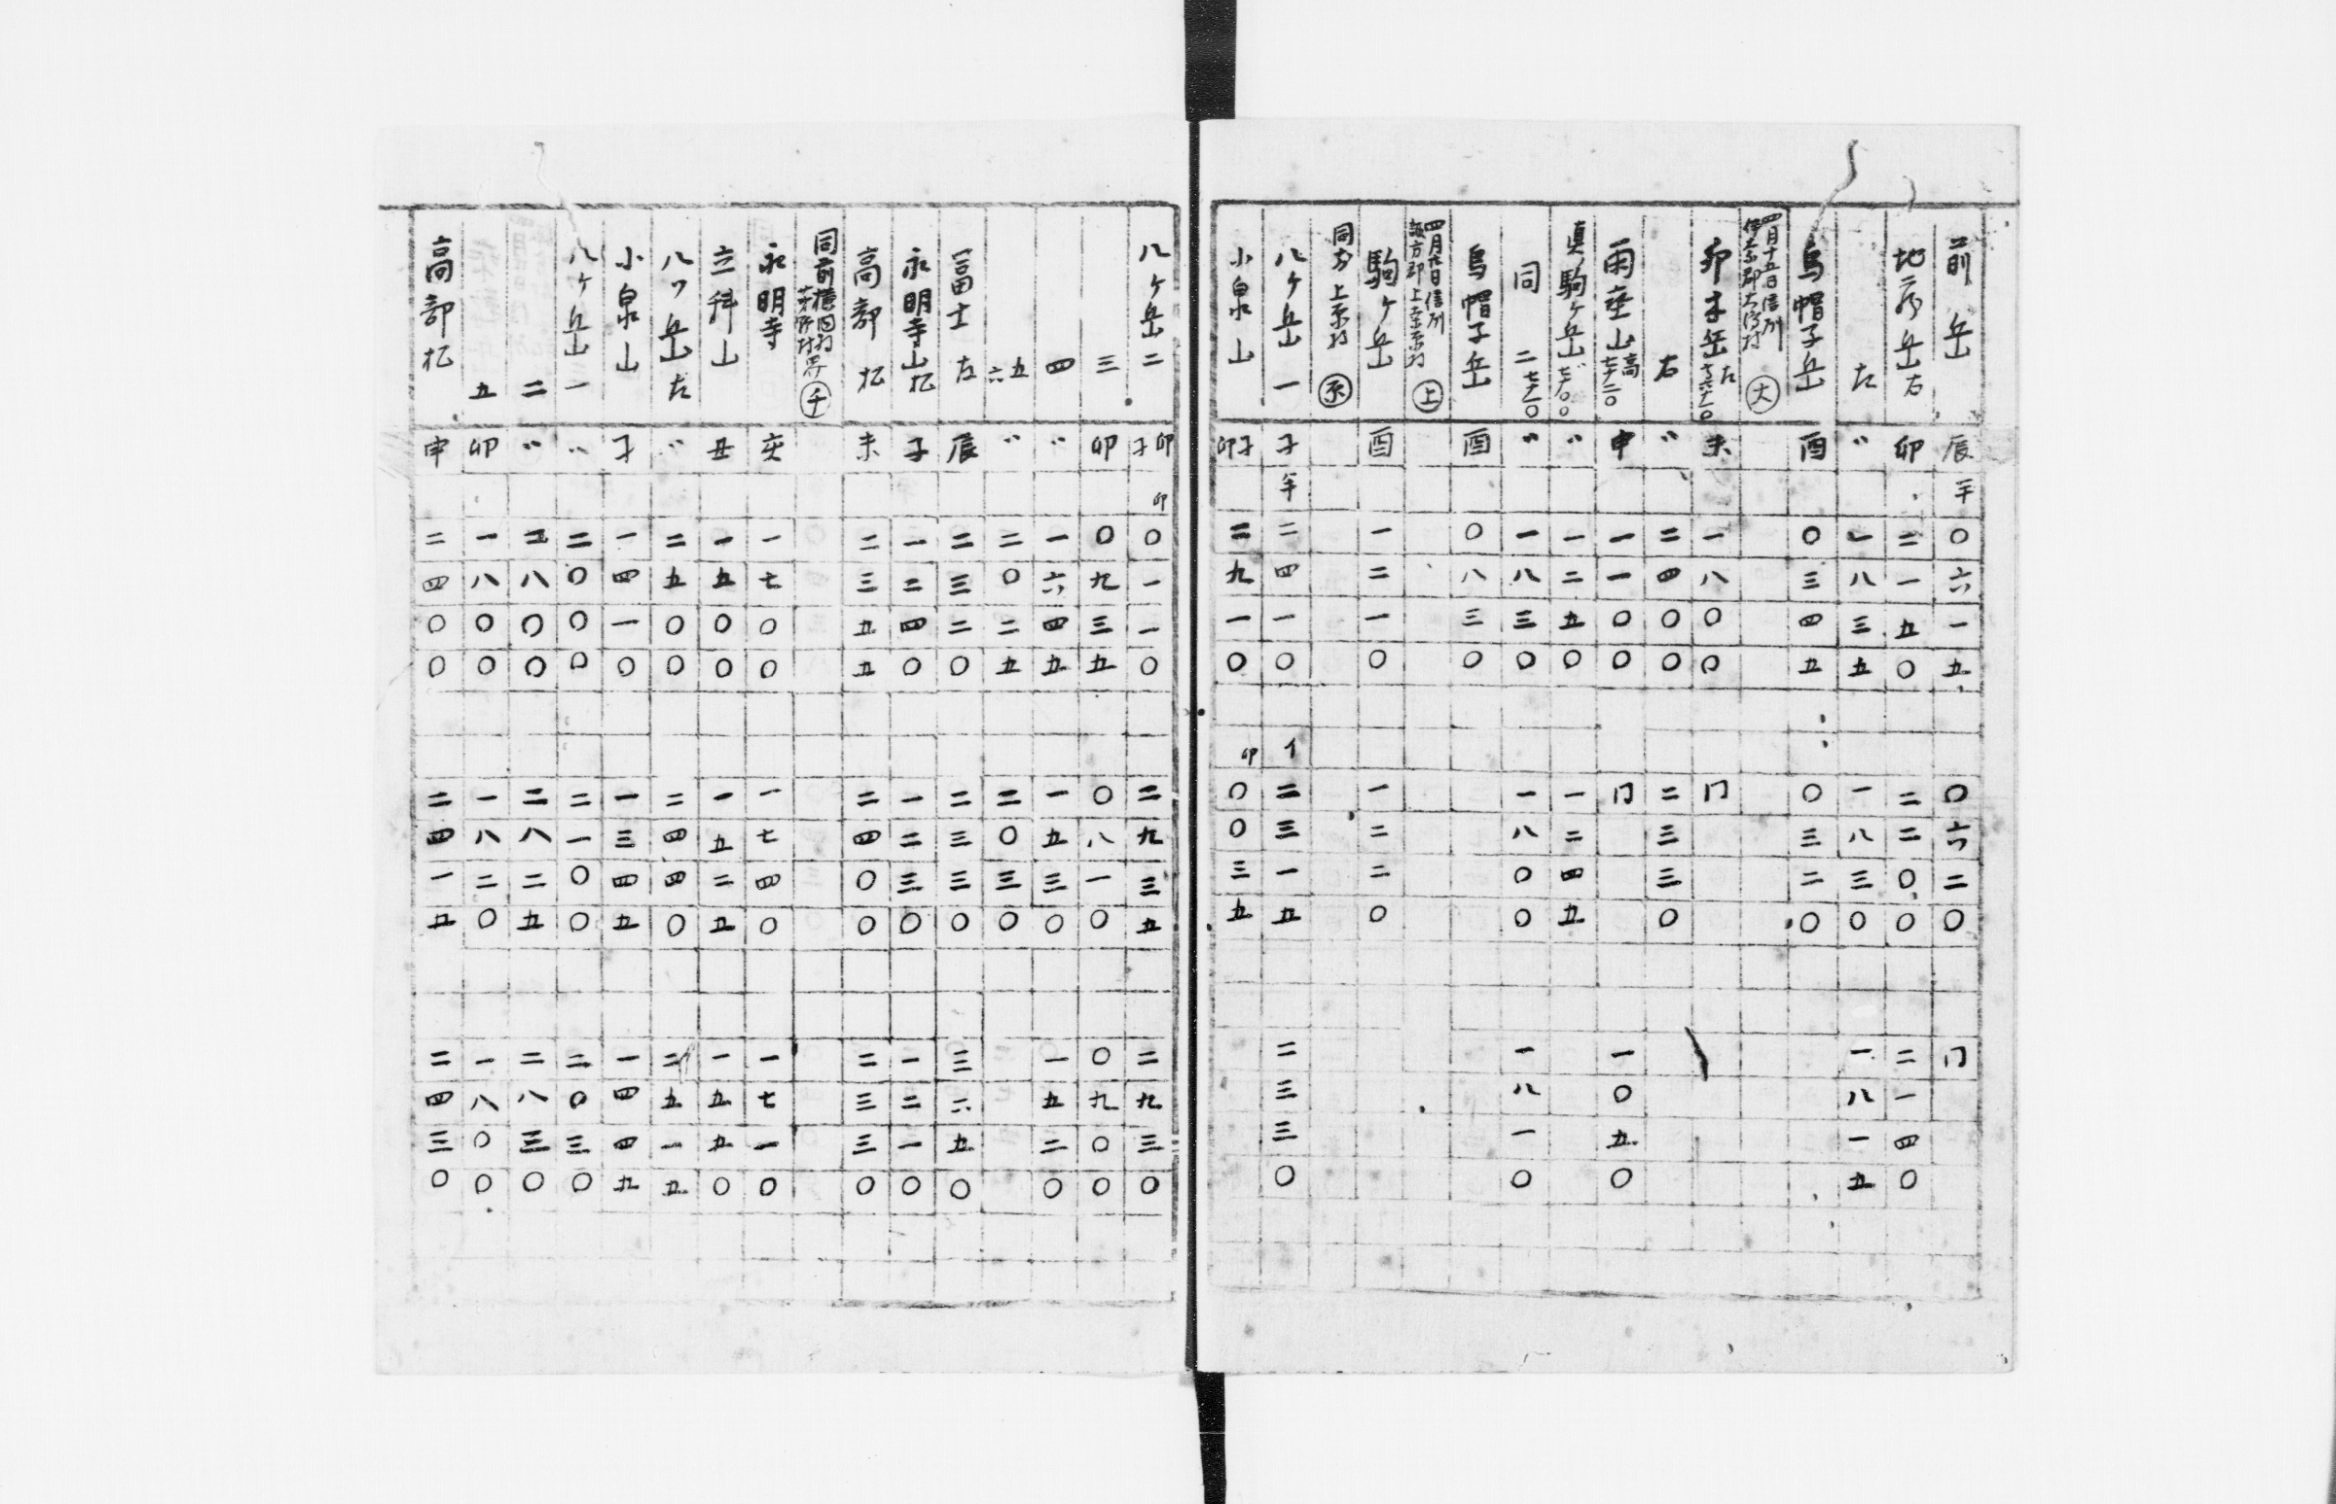 前岳 辰 半 〇六一五 〇六二〇 門
地蔵岳右 卯 二一五〇 二二〇〇 二一四〇
左 〃 一八三五 一八三〇 一八一五
烏帽子岳 酉 〇三四五 〇三二〇
四月十五日信州
伊奈郡大河村 大
卯子岳左 未 一八〇〇 門
右 〃 二四〇〇 二三三〇
雨座山高七二〇 申 一一〇〇 門 一〇五〇
真駒ヶ岳 〃 一二五〇 一二四五
同二 〃 一八三〇 一八〇〇 一八一〇
烏帽子岳 酉 〇八三〇
四月 日信州
上
駒ヶ岳 酉 一二一〇 一二二〇
同 上 村
八ヶ岳一 子 半 二四一〇 イ 二三一五 二三三〇
小泉山 卯子 二九一〇 卯 〇〇三五
八ヶ岳二 子卯 卯 〇一一〇 二九三五 二九三〇
三 卯 〇九三五 〇八一〇 〇九〇〇
四 〃 一六四五 一五三〇 一五二〇
五六 〃 二〇二五 二〇三〇
富士左 辰 二三二〇 二三三〇 三二五〇
永明寺山杉 子 一二四〇 一二三〇 一二一〇
高部杉 未 二三五五 二四〇〇 二三三〇
同前
千
永明寺 亥 一七〇〇 一七四〇 一七一〇
立科山 丑 一五〇〇 一五二五 一五五〇
八ヶ岳左 〃 二五〇〇 二四四〇 二五一五
小泉山 子 一四一〇 一三四五 一四四九
八ヶ岳一 〃 二〇〇〇 二一〇〇 二〇三〇
二 〃 二八〇〇 二八二五 二八三〇
五 卯 一八〇〇 一八二〇 一八〇〇
高部杉 申 二四〇〇 二四一五 二四三〇